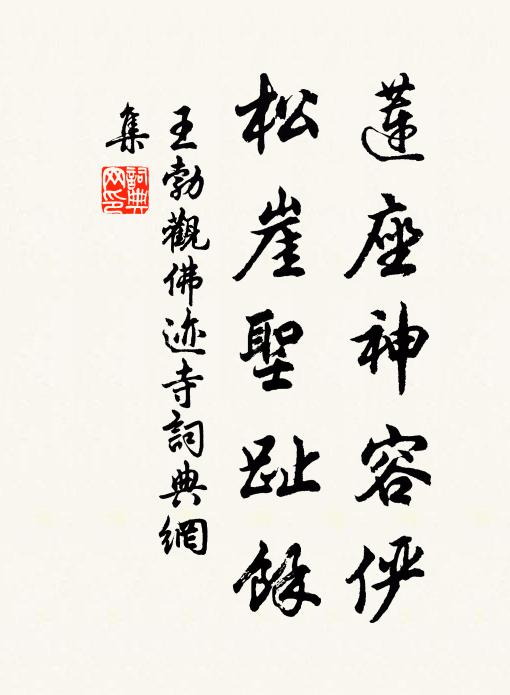 蓮座神容俨
松崖聖趾餘
王勃觀佛迹寺詞典網
集
詞典
网印